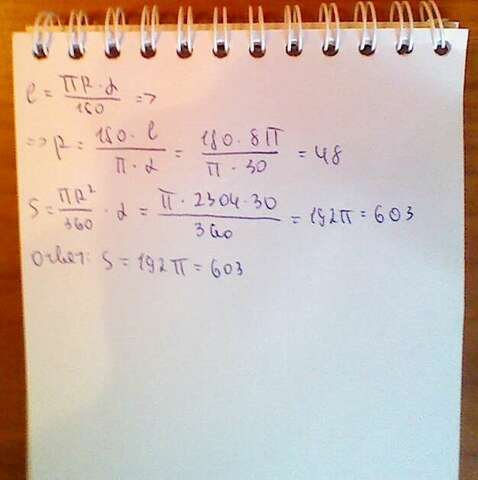 l = πR·α/180 =>
=> R = 180·l/π·α = 180·8π/π·30 = 48
S = πR²/360 · α = π·2304·30/360 = 192π = 603
Ответ: S = 192π = 603